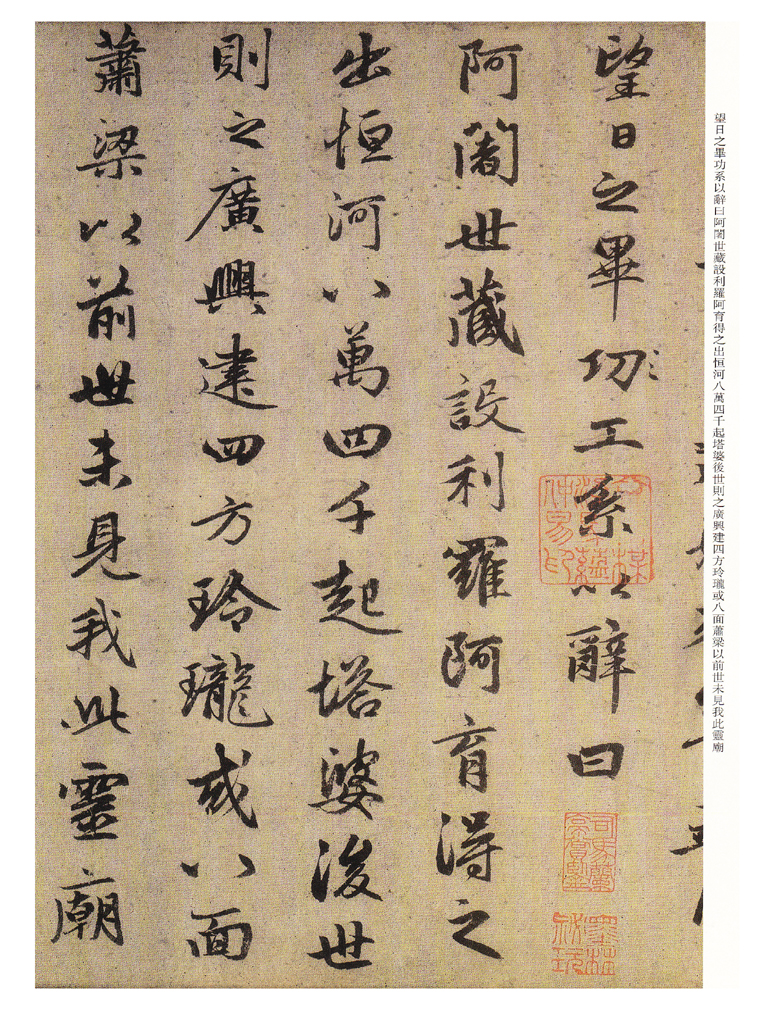 望日之畢功系以辭曰阿闍世藏設利羅阿育得之出恒河八萬四千起塔婆後世則之廣興建四方玲瓏或八面蕭梁以前世未見我此靈廟
望日之畢功工系以辭曰
阿闍世藏設利羅阿育得之
出恒河八萬四千起塔婆後世
則之廣興建四方玲瓏或八面
蕭梁以前世未見我此靈廟
墨林
祕玩